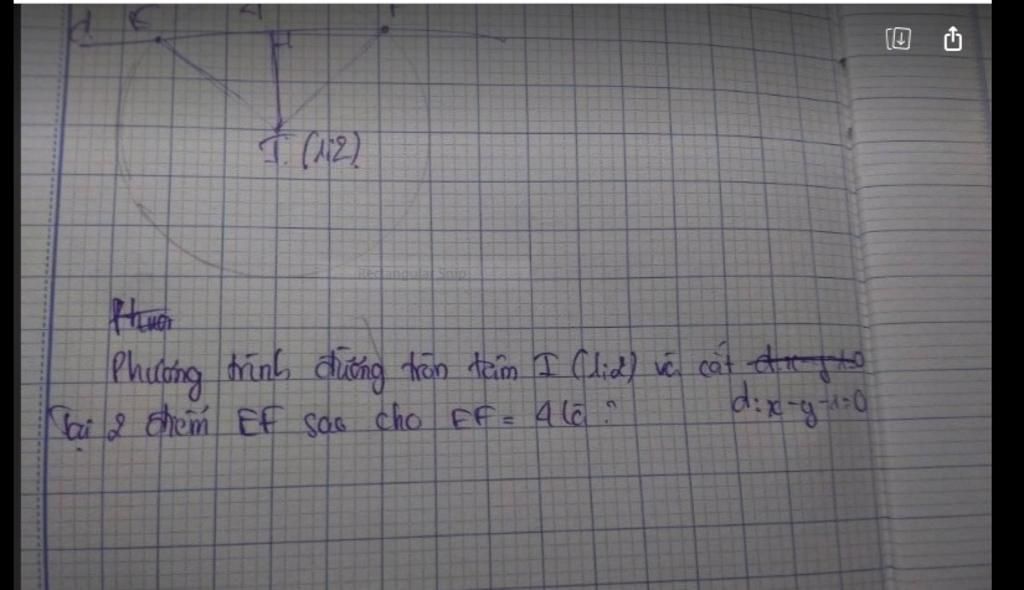 d E
I (1;2)
Phương trình đường tròn tâm I (1;2) và cắt
d: x-y-1=0
Tại 2 điểm EF sao cho EF = 4 là ?
Rectangular Snip